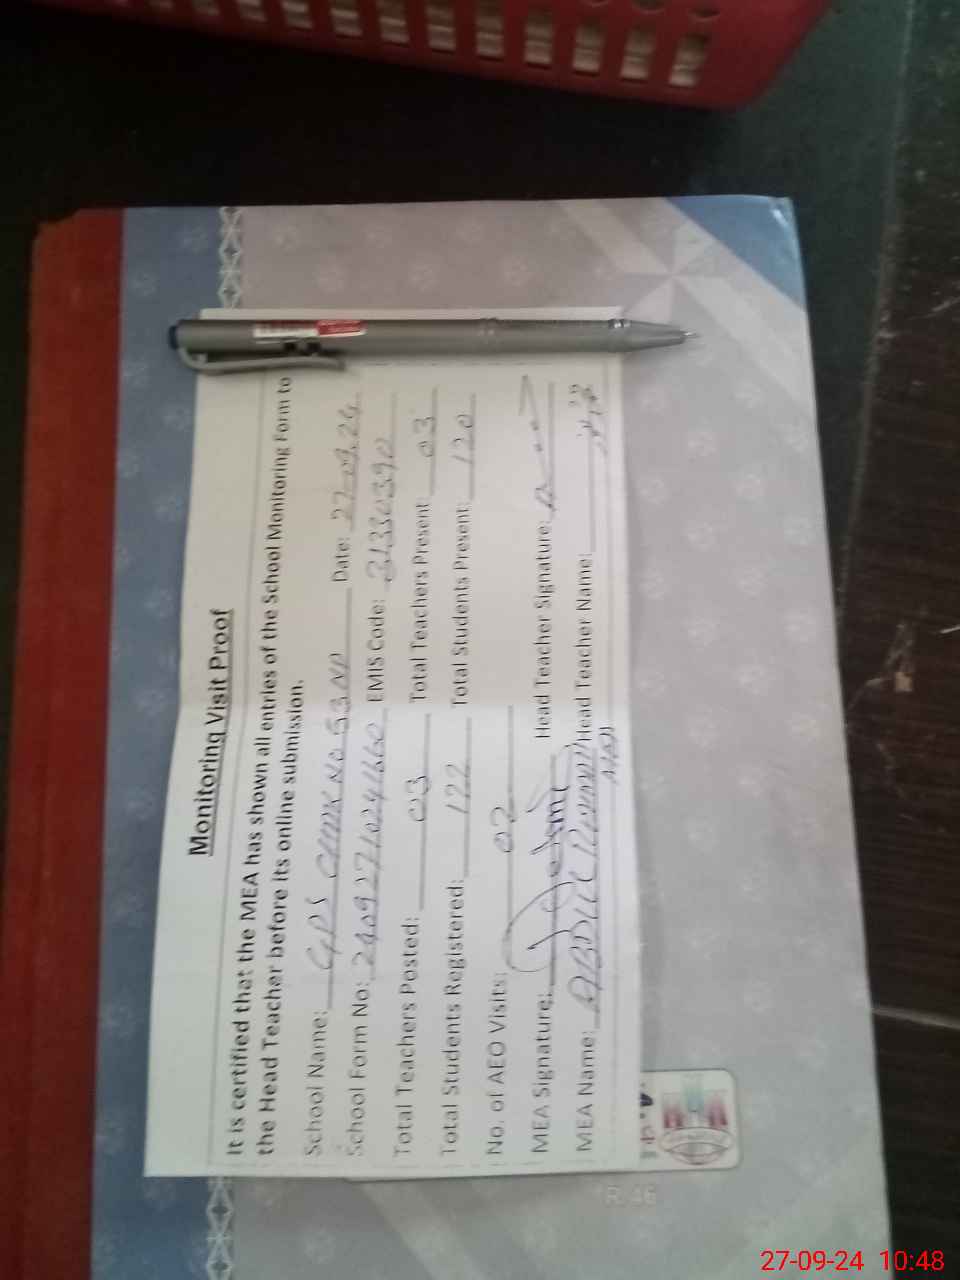 Monitoring Visit Proof
It is certified that the MEA has shown all entries of the School Monitoring Form to
the Head Teacher before its online submission.
School Name: GPS CHAK NO 53 NP Date: 27-09-24
School Form No: EMIS Code: 31330390
Total Teachers Posted: 03 Total Teachers Present: 03
Total Students Registered: 122 Total Students Present: 120
No. of AEO Visits: 02
MEA Signature: Head Teacher Signature:
MEA Name: ABDUL Head Teacher Name:
R.46
27-09-24 10:48